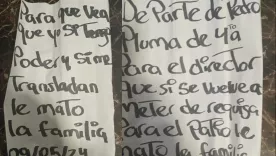 Para que vean
que yo si tengo
Poder y si me
Transladan
le mato
la familia
09/05/24
De Parte de Pedro
Pluma de 4ta
Para el director
que si se vuelve a
Meter de requisa
Para el Patio le
mato la familia